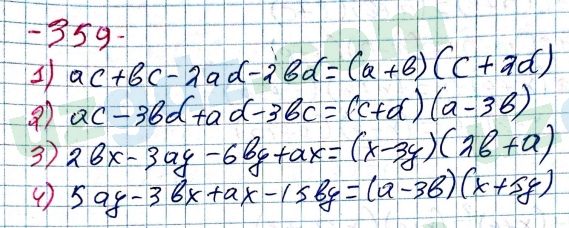 -359-
1) ac+bc-2ad-2bd=(a+b)(c+2d)
2) ac-3bd+ad-3bc=(c+d)(a-3b)
3) 2bx-3ay-6by+ax=(x-3y)(2b+a)
4) 5ay-3bx+ax-15by=(a-3b)(x+5y)